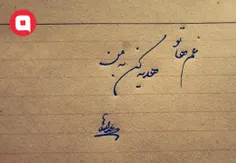 غم هاتو
هدیه کن به من